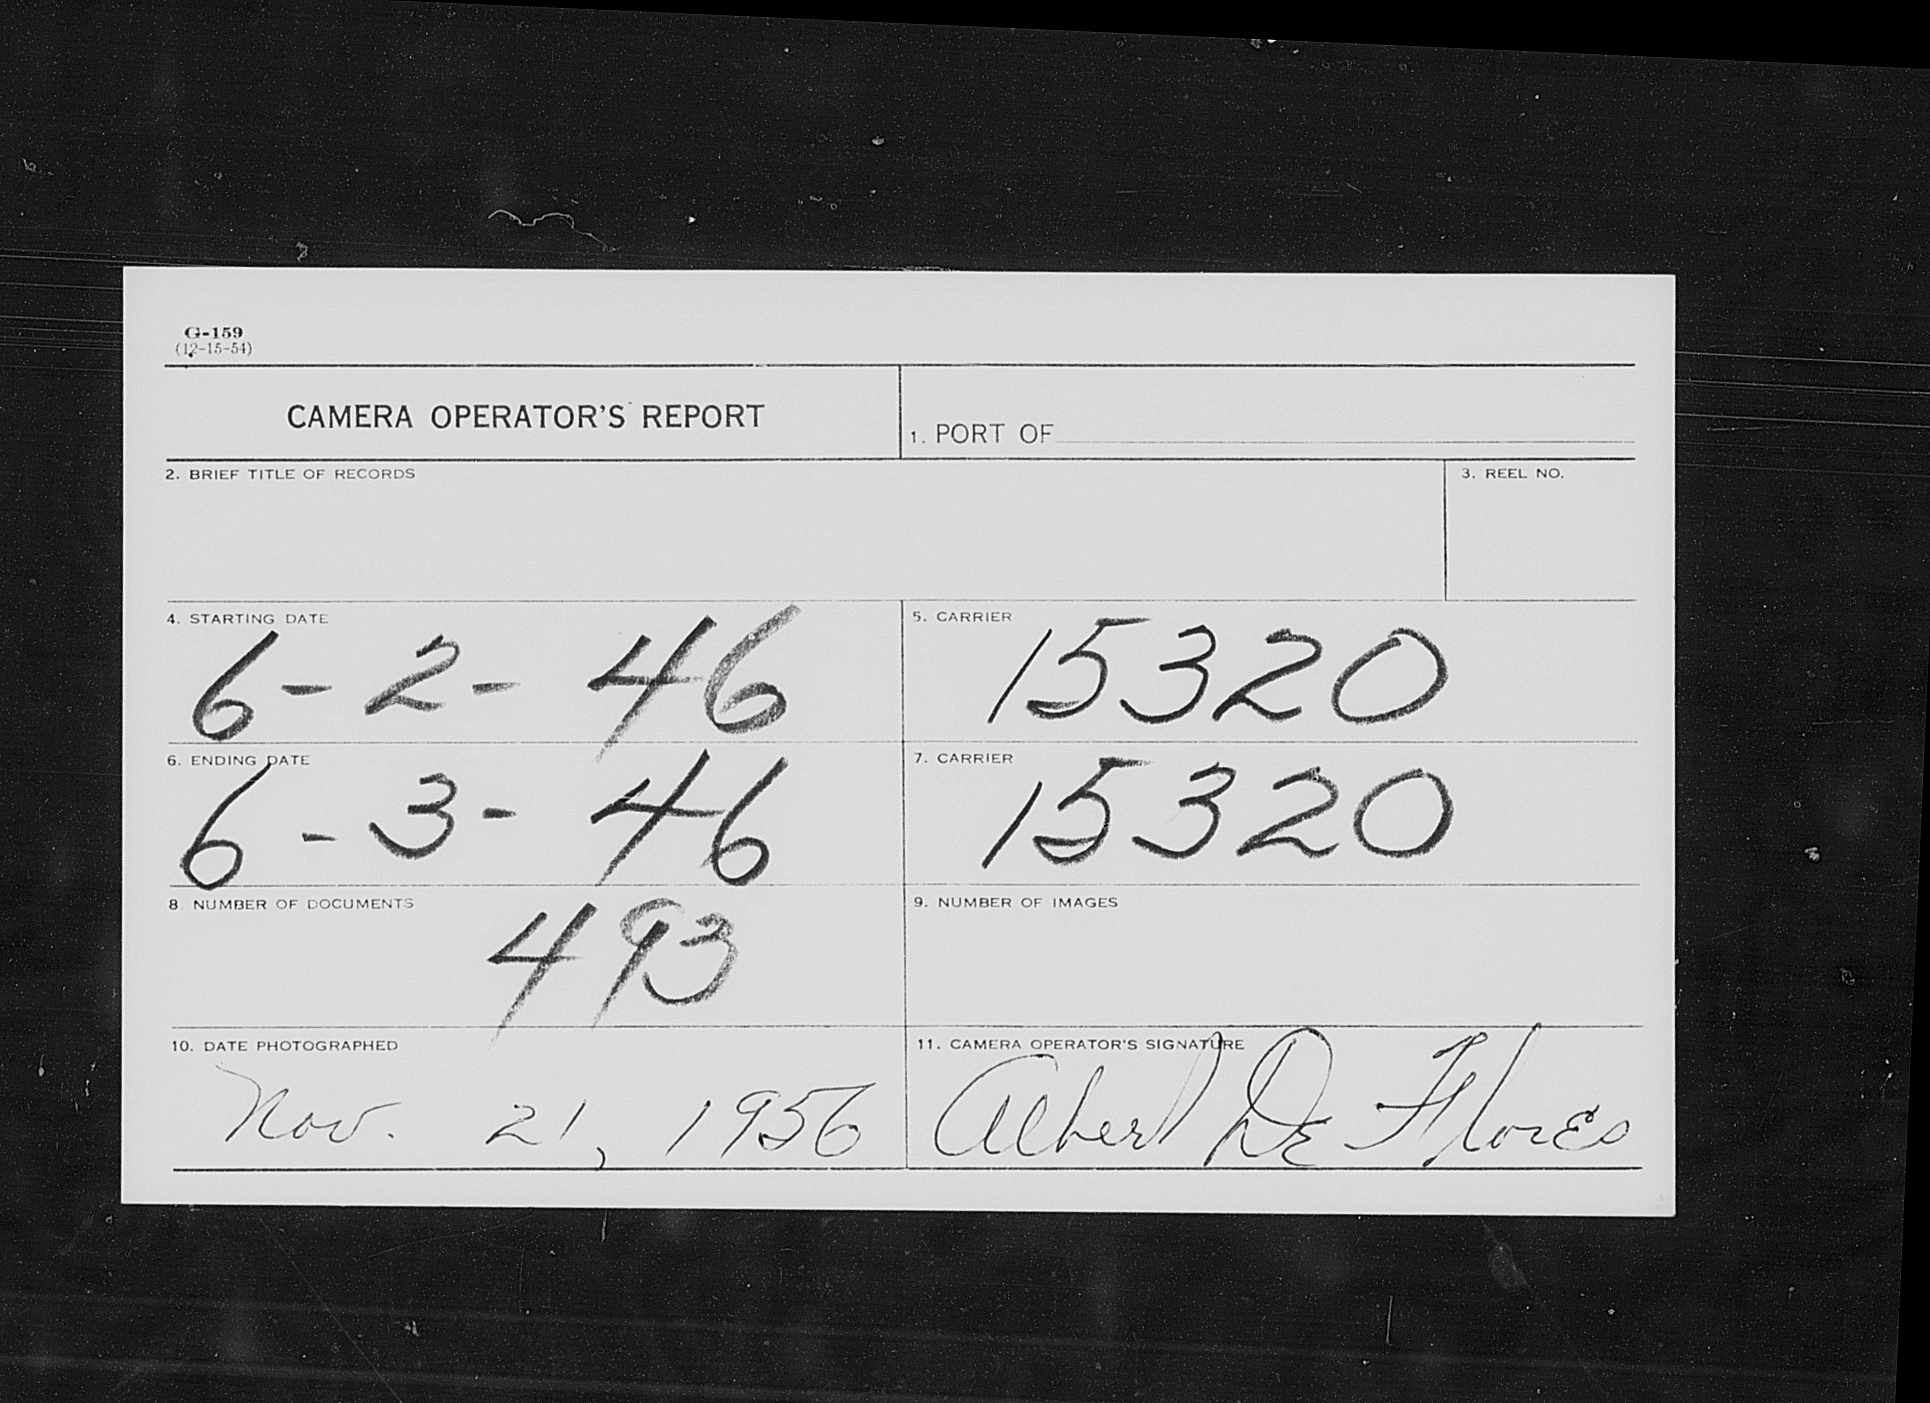 G-159
(12-15-54)
CAMERA OPERATOR'S REPORT
1. PORT OF
2. BRIEF TITLE OF RECORDS
3. REEL NO.
4. STARTING DATE
6-2-46
5. CARRIER
15320
6. ENDING DATE
6-3-46
7. CARRIER
15320
8 NUMBER OF DOCUMENTS
493
9. NUMBER OF IMAGES
10. DATE PHOTOGRAPHED
Nov. 21, 1956
11. CAMERA OPERATOR'S SIGNATURE
Albert De Flores